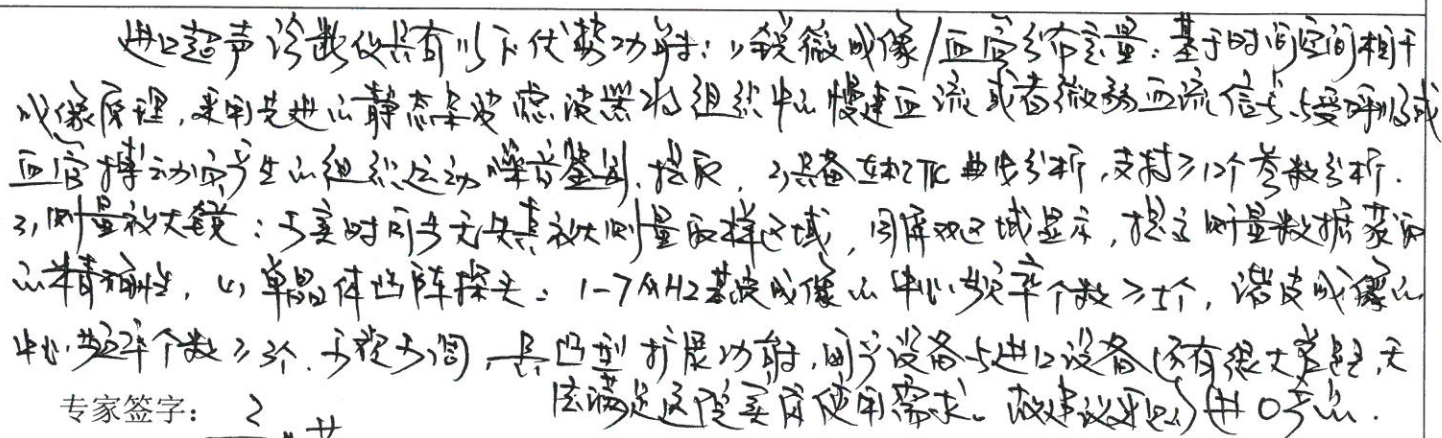 进口超声诊断仪具有以下优势功能：1)锐微成像/血管分布定量：基于时间空间相干
成像原理，采用先进的静态杂波滤波器将组织中的慢速血流或者微弱血流信号与受呼吸或
血管搏动产生的组织运动噪音鉴别、提取，2)具备在机TIC曲线分析，支持≥12个参数分析.
3)测量放大镜：可实时同步无失真放大测量取样区域，同屏双区域显示，提高测量数据获取
的精确性，4)单晶体凸阵探头：1-7MHz基波成像的中心频率个数≥5个，谐波成像的
中心频率个数≥3个.可视可调，具凸型扩展功能，国产设备与进口设备还有很大差距，无
法满足医院实际使用需求。故建议采购进口产品.
专家签字：